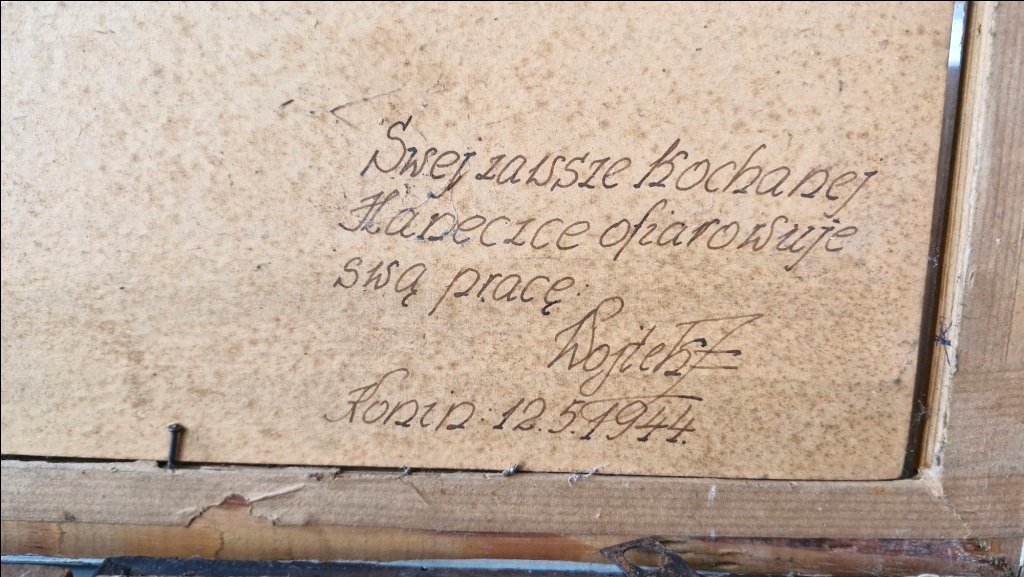 Swej zawsze Kochanej
Haneczce ofiarowuje
swą pracę:
Wojtek
Konin: 12.5.1944.